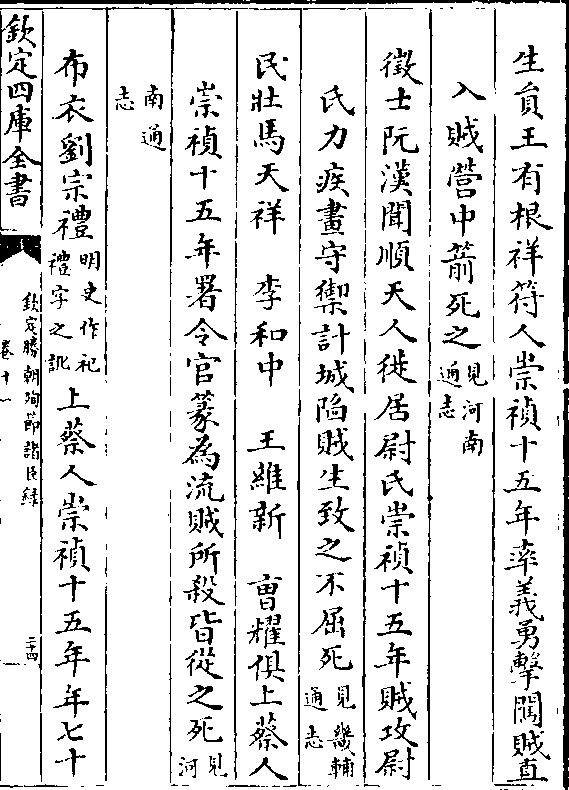 生員王有根祥符人崇禎十五年率義勇擊闖賊直
入賊營中箭死之見河南通志
徵士阮漢聞順天人徙居尉氏崇禎十五年賊攻尉
氏力疾畫守禦計城陷賊生致之不屈死見畿輔通志
民壯馬天祥 李和中 王維新 曹耀俱上蔡人
崇禎十五年署令官篆為流賊所殺皆從之死見河
南通志
布衣劉宗禮明史作祀禮字之訛上蔡人崇禎十五年年七十
欽定四庫全書
欽定勝朝殉節諸臣錄
卷十一
二十四